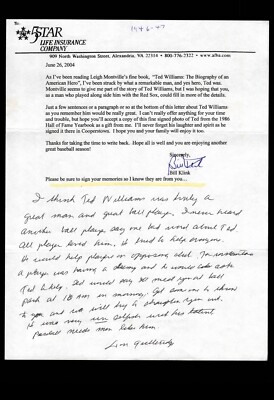 1946-47
5STAR
LIFE INSURANCE
COMPANY
909 North Washington Street, Alexandria, VA 22314 • 800-776-2322 • www.afba.com
June 26, 2004
As I've been reading Leigh Montville's fine book, "Ted Williams: The Biography of an
American Hero", I've been struck by what a remarkable man, and yes hero, Ted was.
Montville seems to give me part of the story of Ted Williams, but I was hoping that you,
as a man who played along side him with the Red Sox, could fill in more of the details.
Just a few sentences or a paragraph or so at the bottom of this letter about Ted Williams as
you remember him would be really great. I can't really offer anything for your time and
trouble, but hope you'll accept a copy of this fine signed photo of Ted from the 1986
Hall of Fame Yearbook as a gift from me. I'll never forget his laughter and spirit as he
signed it there in Cooperstown. I hope you and your family will enjoy it too.
Thanks for taking the time to write back. Hope all is well and you are enjoying another
great baseball season!
Sincerely,
Bill Klink
Please be sure to sign your memories so I know they are from you...
I think Ted Williams was truly a
great man and great ball player. I never heard
another ball player say one bad word about Ted.
All players loved him, he tried to help everyone.
He would help players on opposing club. For instance
a player was having a slump and he would ask
Ted to help. Ted would say to meet you at ball
park at 10 AM in morning. Get someone to throw
to you and we will try to straighten you out.
He was very un selfish with his talent
Baseball needs men like him.
Jim